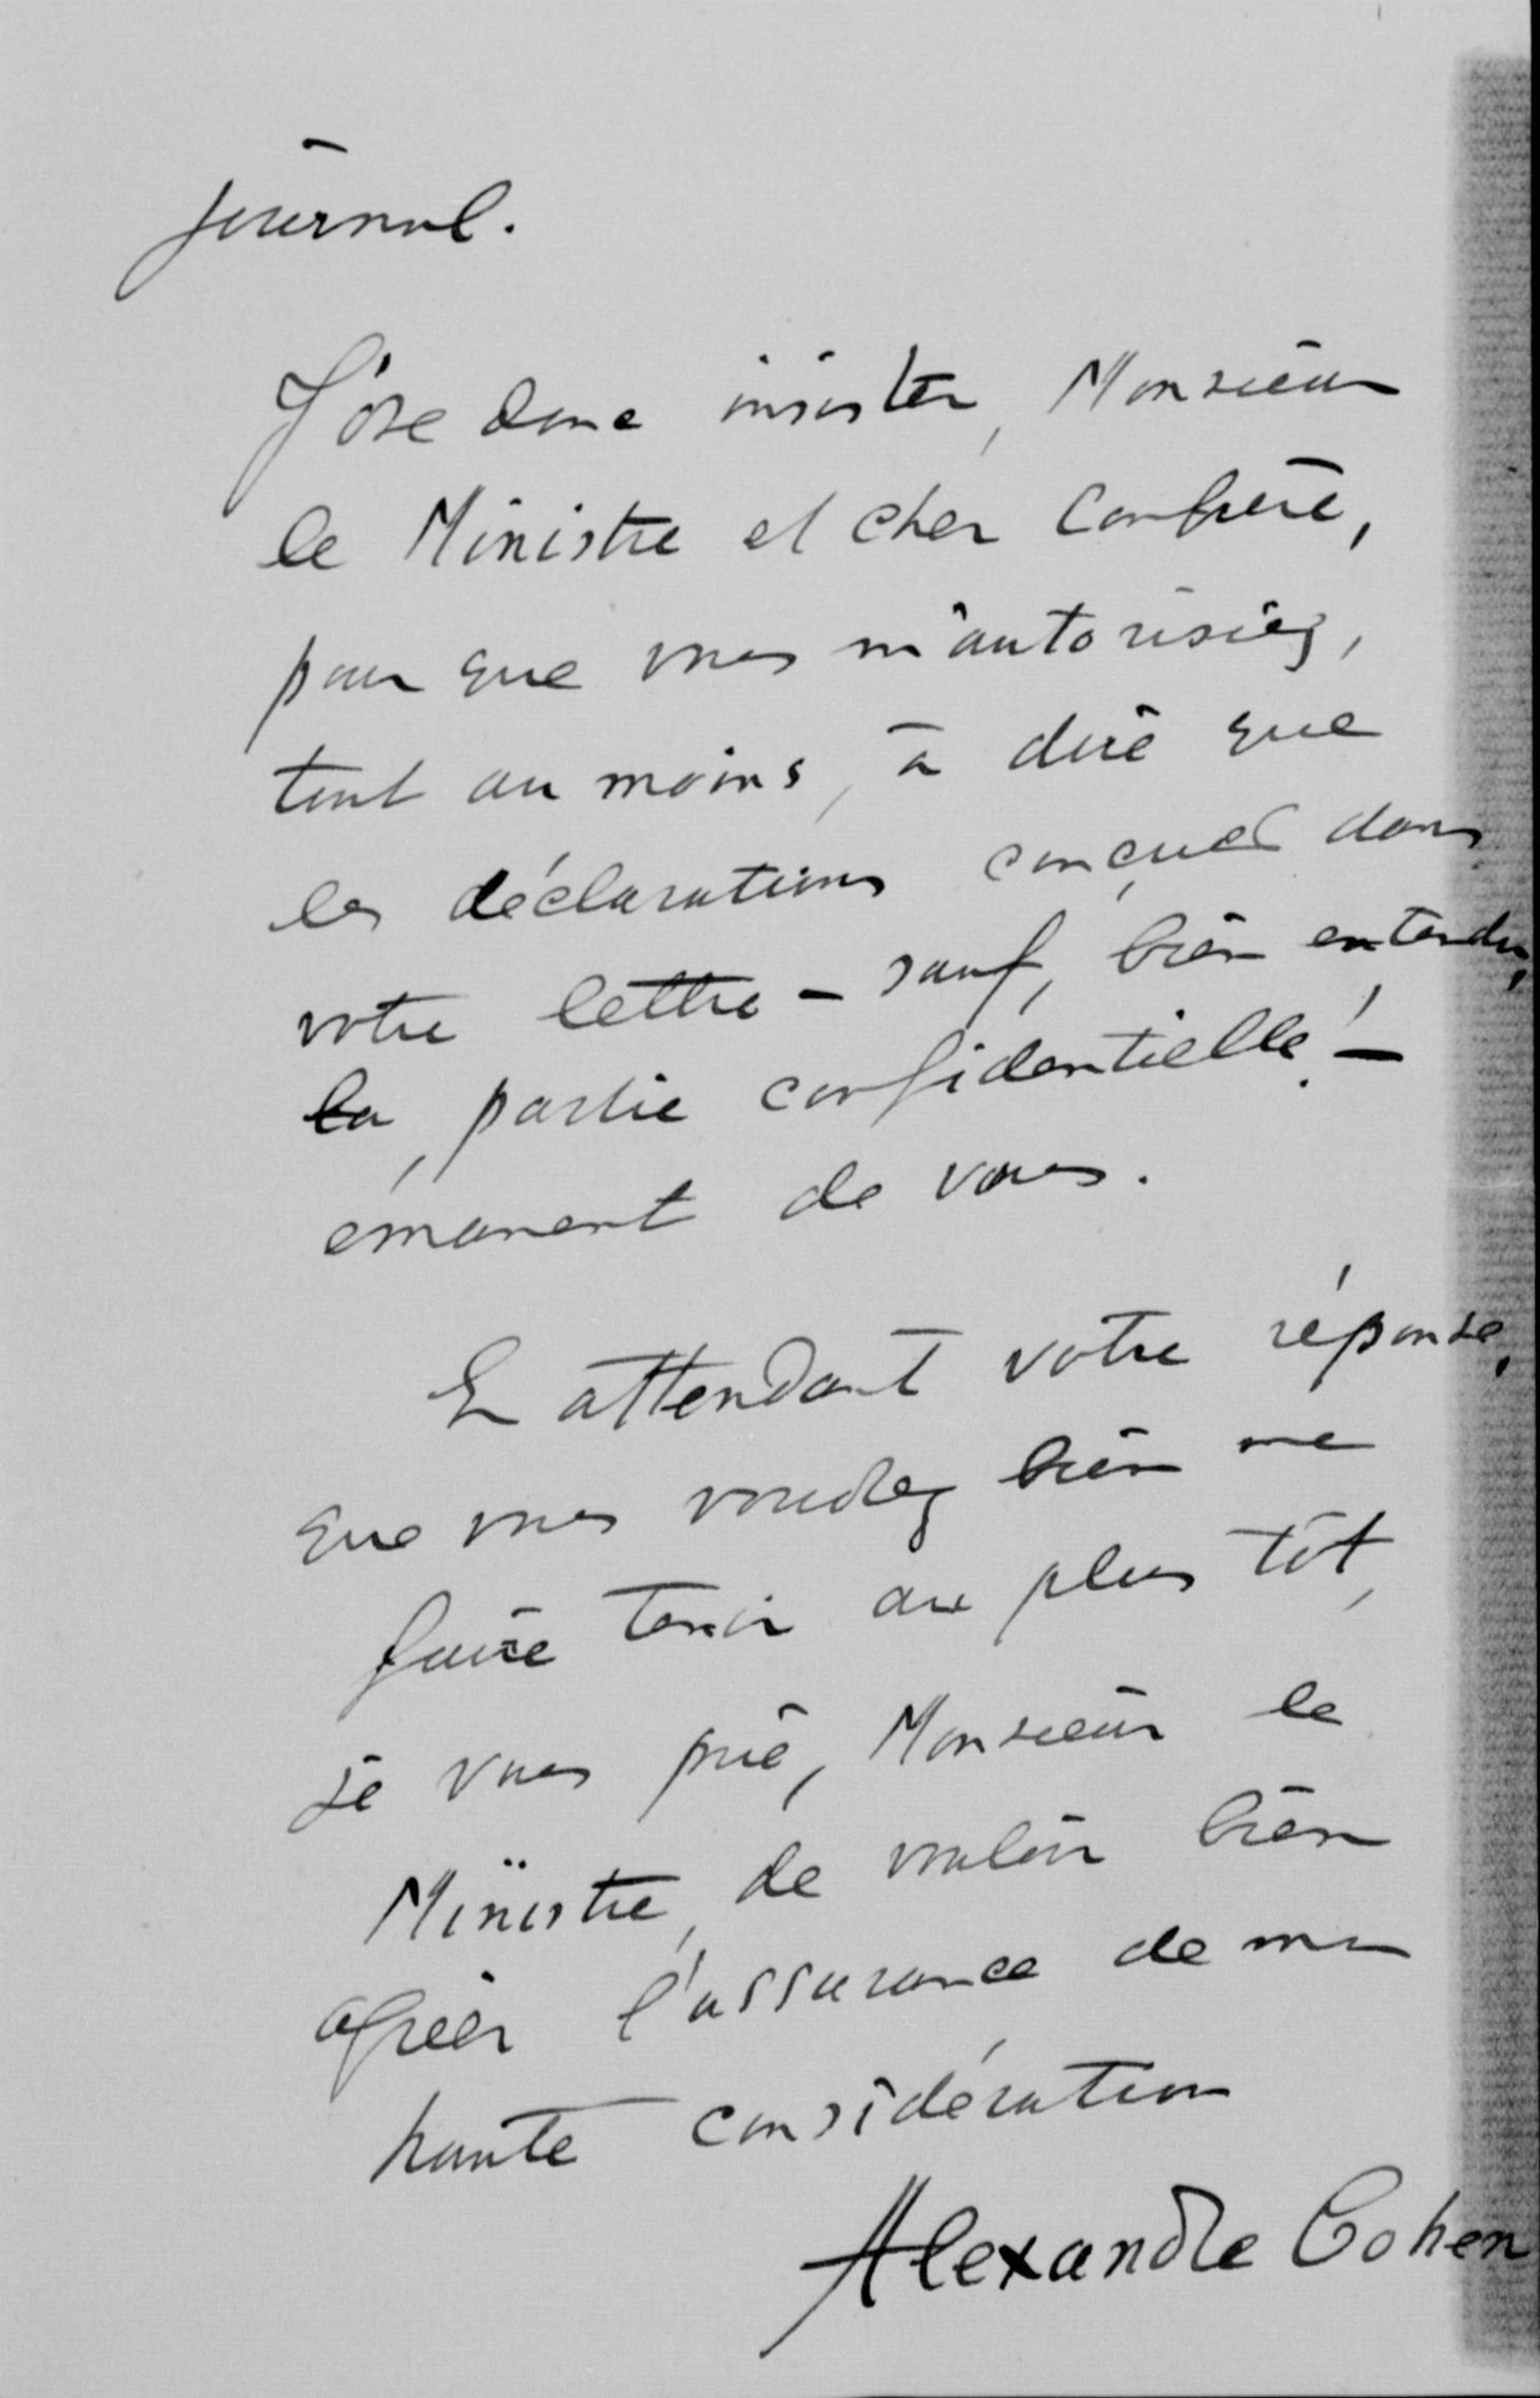 journal.
J'ose donc insister, Monsieur
le Ministre et cher Confrère,
pour que vous m'autorisiez,
tout au moins, à dire que
les déclarations conçues dans
votre lettre – sauf, bien entendu,
la partie confidentielle! –
émanent de vous.
En attendant votre réponse,
que vous voudrez bien me
faire tenir au plus tôt,
je vous prie, Monsieur le
Ministre, de vouloir bien
agréer l'assurance de ma
haute considération
Alexandre Cohen